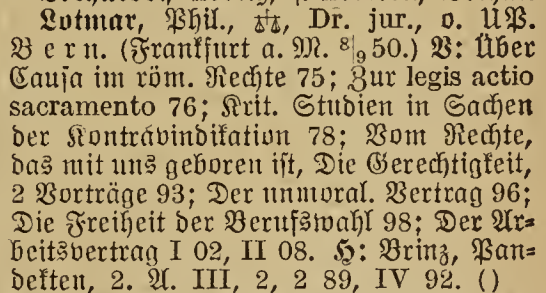 Lotmar, Phil., ⚖, Dr. jur., o. UP.
Bern. (Frankfurt a. M. 8|9 50.) V: Über
Causa im röm. Rechte 75; Zur legis actio
sacramento 76; Krit. Studien in Sachen
der Kontrávindikation 78; Vom Rechte,
das mit uns geboren ist, Die Gerechtigkeit,
2 Vorträge 93; Der unmoral. Vertrag 96;
Die Freiheit der Berufswahl 98; Der Ar-
beitsvertrag I 02, II 08. H: Brinz, Pan-
dekten, 2. A. III, 2, 2 89, IV 92. ()